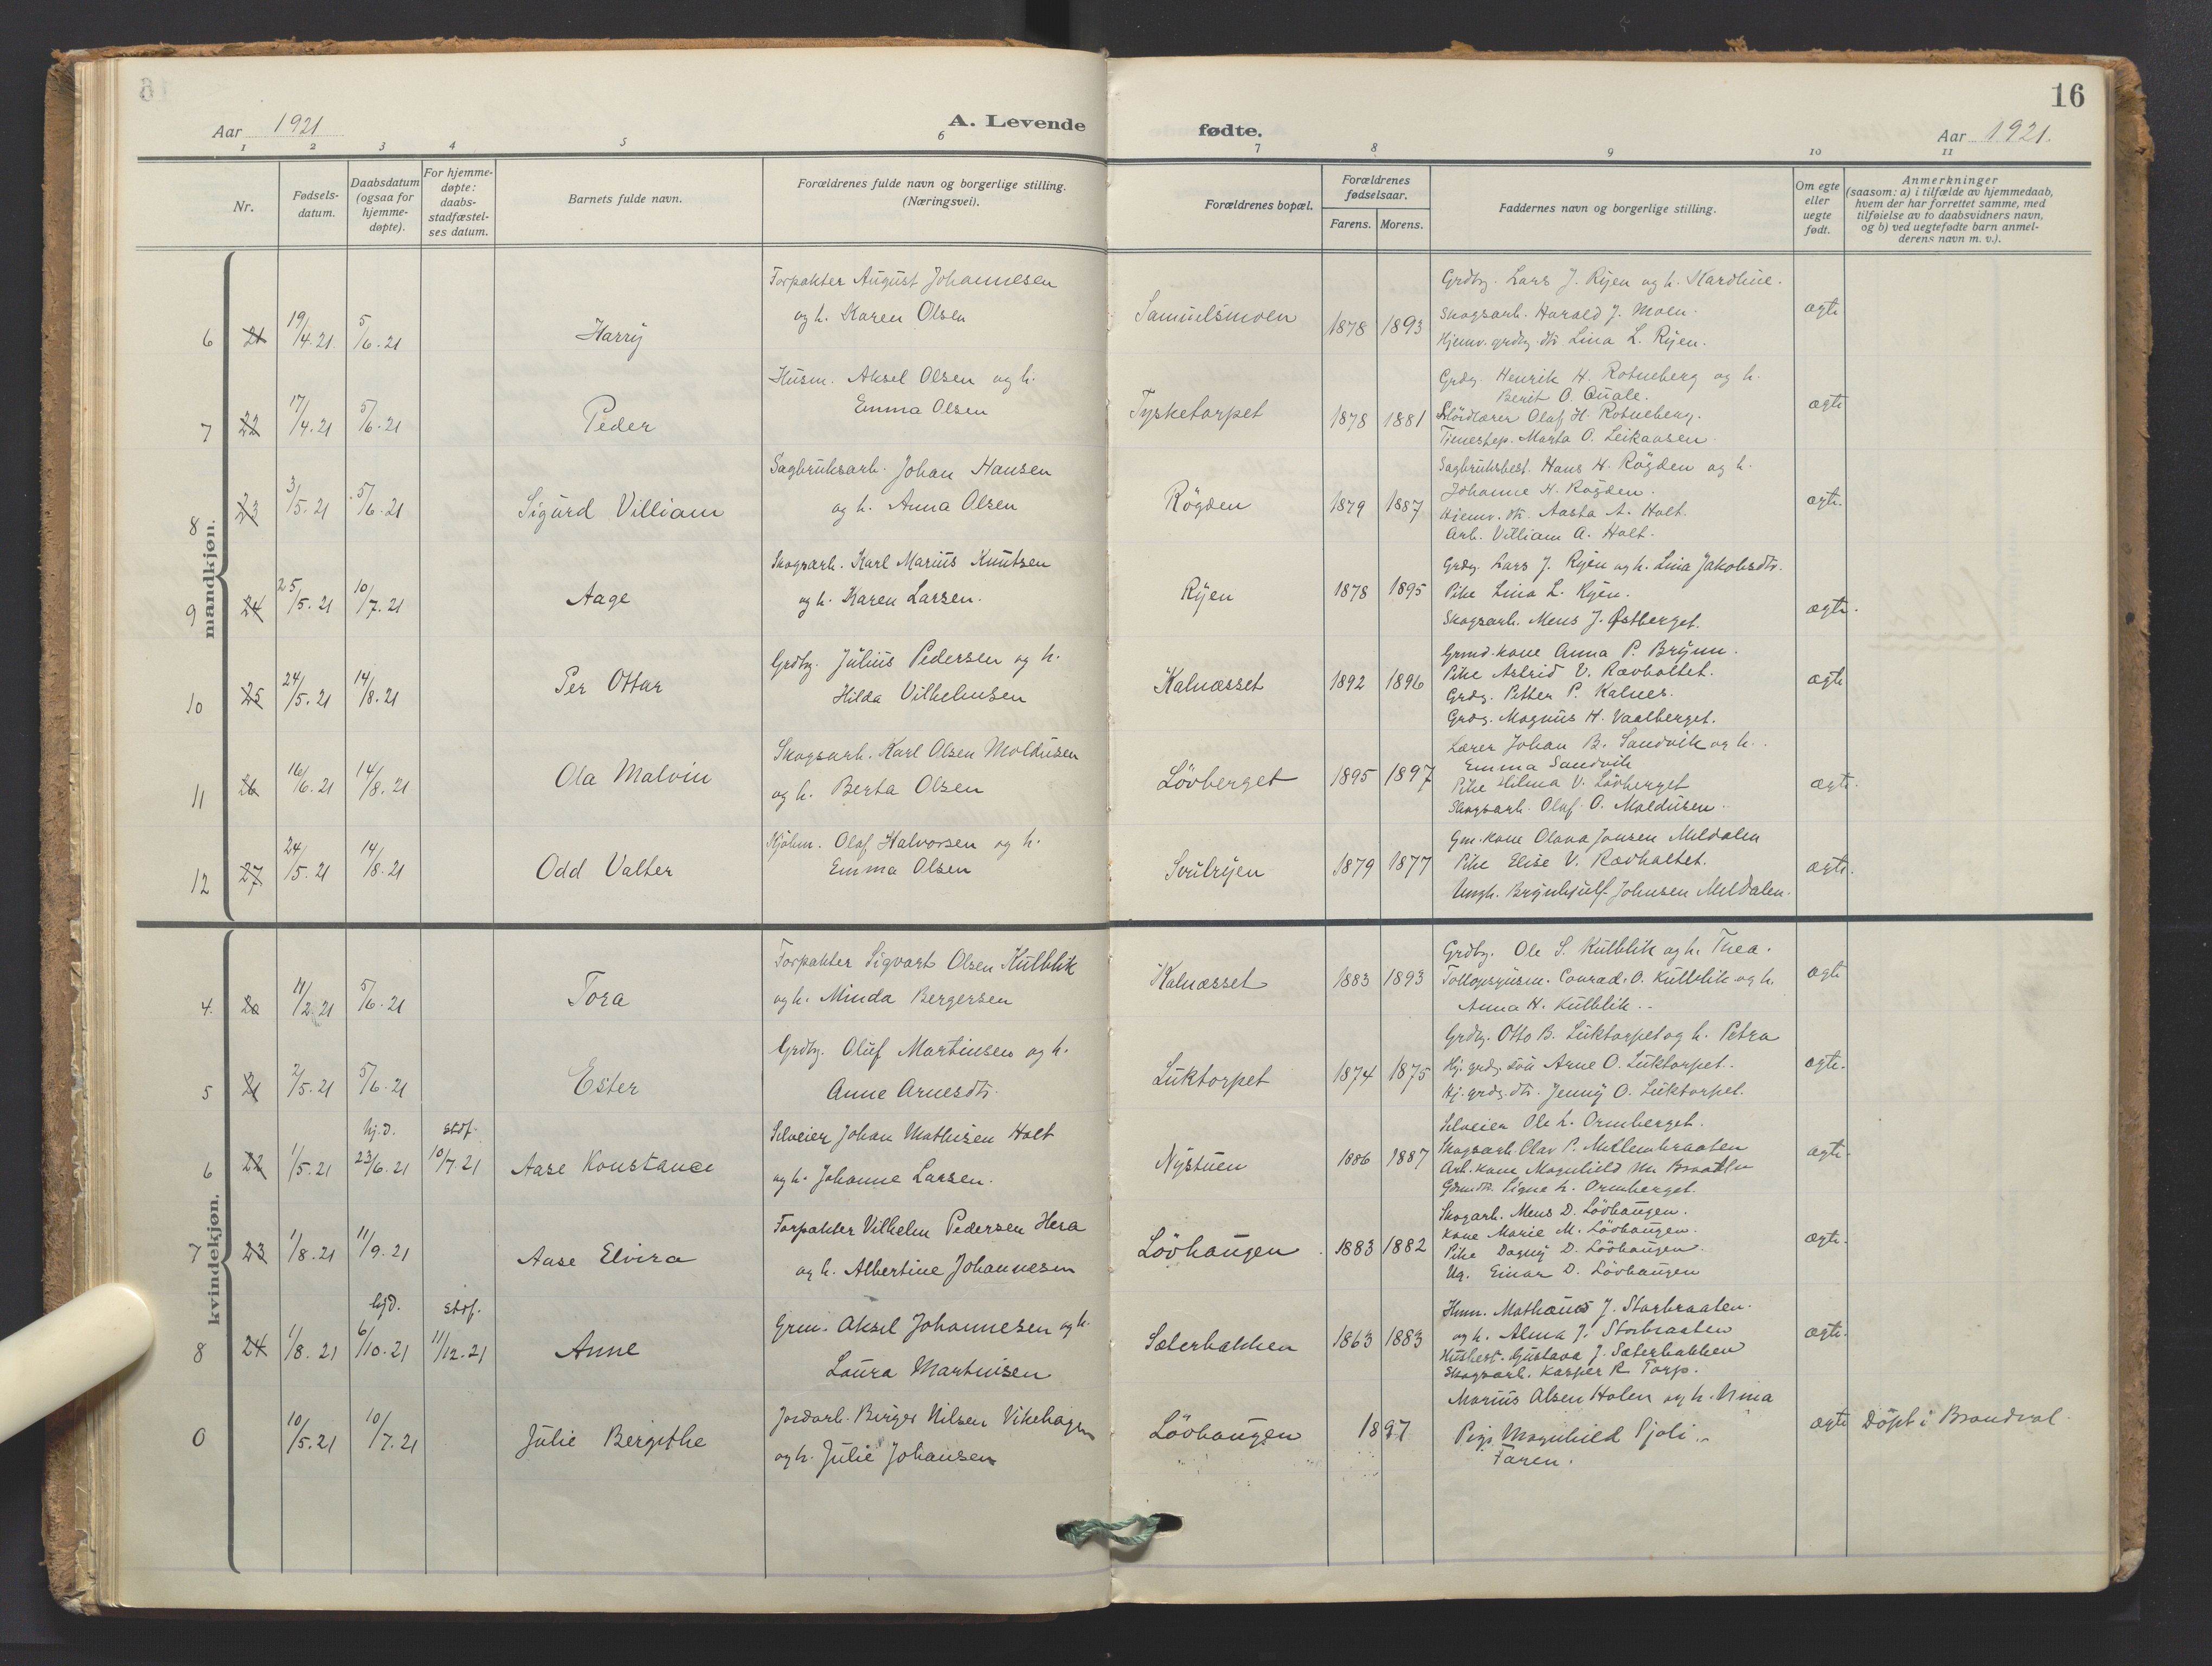 16
Aar 1921
A. Levende fødte.
Aar 1921.
1 2 3 4 5 6 7 8 9 10 11
Nr.
Fødsels-
datum.
Daabsdatum
(ogsaa for
hjemme-
døpte).
For hjemme-
døpte:
daabs-
stadfæstel-
ses datum.
Barnets fulde navn.
Forældrenes fulde navn og borgerlige stilling.
(Næringsvei).
Forældrenes bopæl.
Forældrenes
fødselsaar.
Farens. Morens.
Faddernes navn og borgerlige stilling.
Om egte
eller
uegte
født.
Anmerkninger
(saasom: a) i tilfælde av hjemmedaab,
hvem der har forrettet samme, med
tilføielse av to daabsvidners navn,
og b) ved uegtefødte barn anmel-
derens navn m. v.).
mandkjøn.
6 21 19/4.21 5/6.21 Harry
Forpakter August Johannesen
og h. Karen Olsen
Samuelsmoen 1878 1893
Grdbr. Lars J. Ryen og h. Mardhine.
Skogsarb. Harald J. Moen.
Hjemv. grdbr. dtr. Lina L. Ryen.
egte
7 22 17/4.21 5/6.21 Peder
Husm. Aksel Olsen og h.
Emma Olsen
Tysketorpet 1878 1881
Grdbr. Henrik H. Rotneberg og h.
Berit O. Quale.
Slöidlærer Olaf H. Rotneberg.
Tjenestep. Marta O. Leikaasen.
egte
8 23 3/5.21 5/6.21 Sigurd Villiam
Sagbruksarb. Johan Hansen
og h. Anna Olsen
Rögden 1879 1887
Sagbruksbest. Hans H. Rögden og h.
Johanne H. Rögden.
Hjemv. dtr. Aasta A. Holt.
Arb. Villiam A. Holt.
egte.
9 24 25/5.21 10/7.21 Aage
Skogsarb. Karl Marius Knutsen
og h. Karen Larsen.
Ryen 1878 1895
Grdbr. Lars J. Ryen og h. Lina Jakobsdtr.
Pike Lina L. Ryen.
Skogsarb. Mens J. Østberget.
egte.
10 25 24/5.21 14/8.21 Per Ottar
Grdbr. Julius Pedersen og h.
Hilda Vilhelmsen
Kalnæsset 1892 1896
Grmd. kone Anna P. Brynn.
Pike Astrid V. Rævholtet.
Grdbr. Petter P. Kalnes.
Grdbr. Magnus H. Vaalberget.
egte
11 26 16/6.21 14/8.21 Ola Malvin
Skogsarb. Karl Olsen Moldusen
og h. Berta Olsen
Lövberget 1895 1897
Lærer Johan B. Sandvik og h.
Emma Sandvik
Pike Hilma V. Lövberget
Skogsarb. Olaf O. Moldusen.
egte.
12 27 24/5.21 14/8.21 Odd Valter
Kjøbm. Olaf Halvorsen og h.
Emma Olsen
Svulryen 1879 1877
Gm. kone Olava Jonsen Meldalen
Pike Elise V. Rævholtet.
Ungk. Brynhjulf Johnsen Meldalen.
egte.
kvindekjøn.
4. 20 11/2.21 5/6.21 Tora
Forpakter Sigvart Olsen Kulblik
og h. Minda Bergersen
Kalnæsset 1883 1893
Grdbr. Ole S. Kulblik og h. Thea.
Tollopsynsm. Conrad. O. Kulblik og h.
Anna H. Kulblik.
egte
5 21 2/5.21 5/6.21 Ester
Grdbr. Oluf Martinsen og h.
Anne Arnesdtr.
Luktorpet 1874 1875
Grdbr. Otto B. Luktorpet og h. Petra
Hj. grdbr. sön Arne O. Luktorpet.
Hj. grdbr. dtr. Jenny O. Luktorpet.
egte.
hj.d. stdf.
6 22 1/5.21 23/6.21 10/7.21 Aase Konstance
Selveier Johan Mathisen Holt
og h. Johanne Larsen.
Nystuen 1886 1887
Selveier Ole L. Ormberget.
Skogsarb. Olav P. Mellembraaten
Arb. kone Magnhild M. Braaten
Grdmdtr. Signe L. Ormberget.
egte.
7 23 1/8.21 11/9.21 Aase Elvira
Forpakter Vilhelm Pedersen Hera
og h. Albertine Johannesen
Lövhaugen 1883 1882
Skogarb. Mens D. Lövhaugen.
Kone Marie M. Lövhaugen.
Pike Dagny D. Lövhaugen.
Ug. Einar D. Lövhaugen
egte.
hjd. stdf.
8 24 1/8.21 6/10.21 11/12.21 Anne
Grm. Aksel Johannesen og h.
Laura Martinsen
Sæterbakken 1863 1883
Hmn. Mathæus J. Storbraaten.
og h. Alma J. Storbraaten
Husbest. Gustava J. Sæterbakken
Skogsarb. Kasper R. Torp.
egte.
0 10/5.21 10/7.21 Julie Bergithe
Jordarb. Birger Nilsen Vikehagen
og h. Julie Johansen
Lövhaugen 1897
Marius Alsen Holen og h. Nina
Pige Magnhild Pjoli.
Faren.
egte Döpt i Brandval.